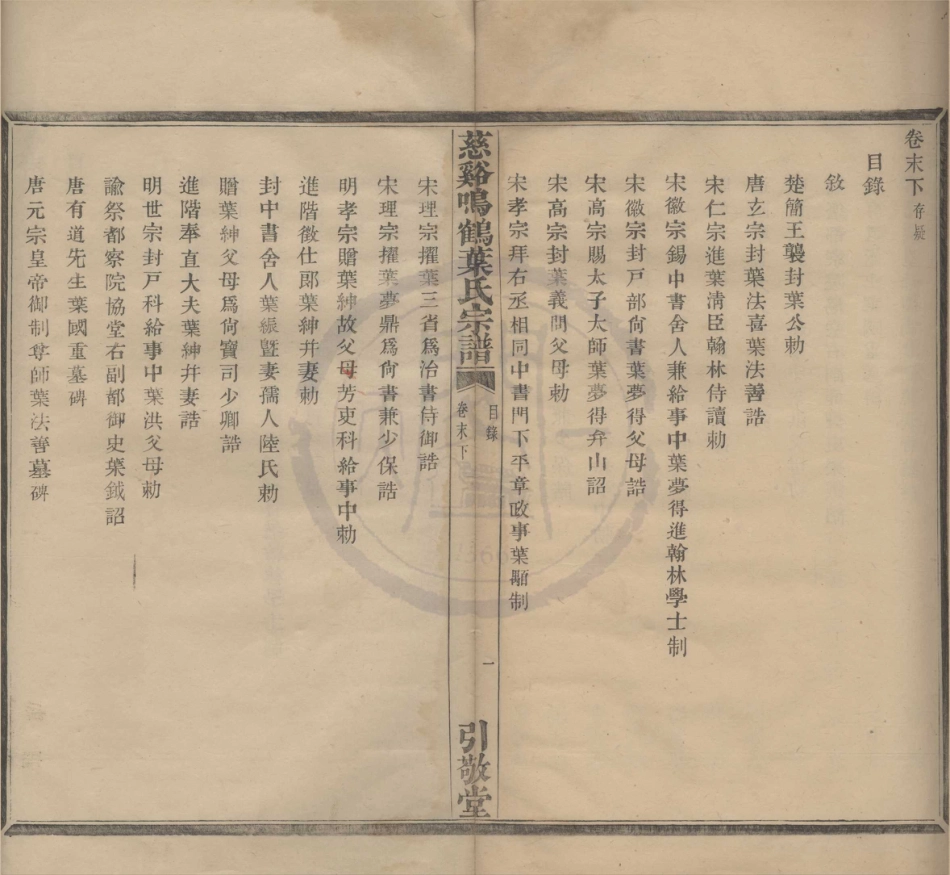 卷末下 存疑
目錄
敘
楚簡王襲封葉公勅
唐玄宗封葉法喜葉法善誥
宋仁宗進葉清臣翰林侍讀勅
宋徽宗錫中書舍人兼給事中葉夢得進翰林學士制
宋徽宗封戸部尙書葉夢得父母誥
宋高宗賜太子太師葉夢得弁山詔
宋高宗封葉義問父母勅
宋孝宗拜右丞相同中書門下平章政事葉顒制
慈谿鳴鶴葉氏宗譜
目錄
卷末下
一
引敬堂
宋理宗擢葉三省爲治書侍御誥
宋理宗擢葉夢鼎爲尙書兼少保誥
明孝宗贈葉紳故父母芳吏科給事中勅
進階徵仕郎葉紳幷妻勅
封中書舍人葉縀暨妻孺人陸氏勅
贈葉紳父母爲尙寶司少卿誥
進階奉直大夫葉紳幷妻誥
明世宗封戸科給事中葉洪父母勅
諭祭都察院協堂右副都御史葉鉞詔
唐有道先生葉國重墓碑
唐元宗皇帝御制尊師葉法善墓碑